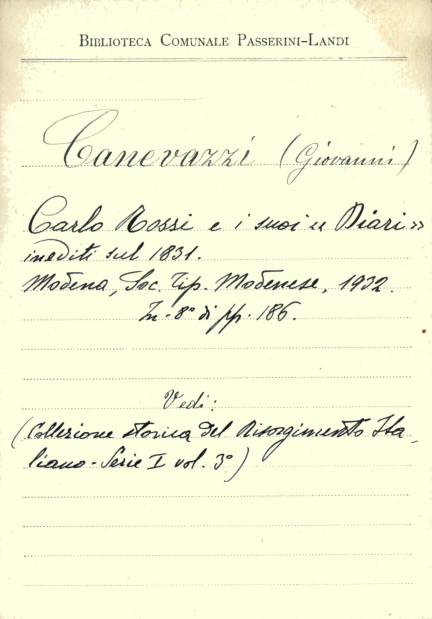 BIBLIOTECA COMUNALE PASSERINI-LANDI
Canevazzi (Giovanni)
Carlo Rossi e i suoi « Diari »
inediti sul 1831.
Modena, Soc. Tip. Modenese, 1932.
In-8° di pp. 186.
Vedi:
(Collezione storica del Risorgimento Ita-
liano - Serie I vol. 3°)